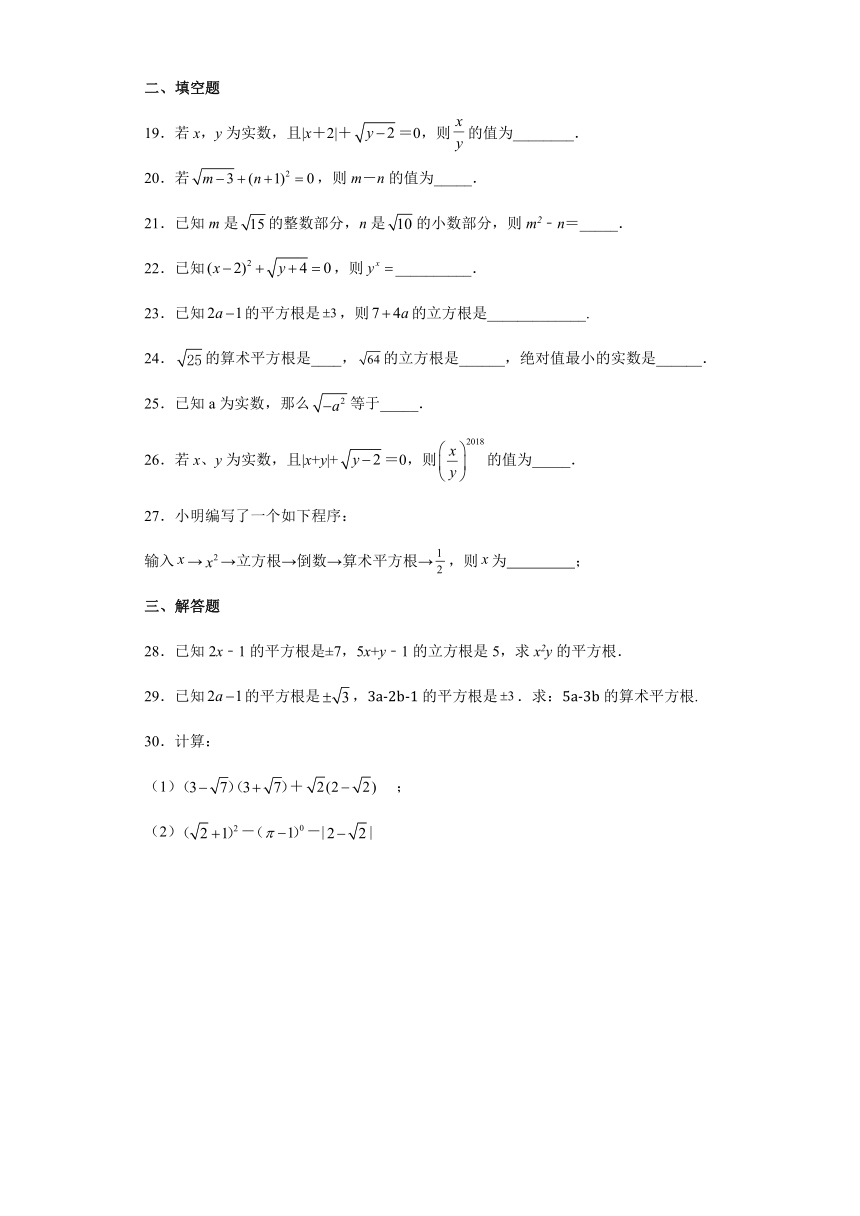 二、填空题
19．若 x，y 为实数，且|x＋2|＋√(y−2)＝0，则 x/y 的值为________．
20．若√(m−3)+(n+1)²=0，则 m－n 的值为_____．
21．已知 m 是√15的整数部分，n 是√10的小数部分，则 m²﹣n＝_____．
22．已知(x−2)²+√(y+4)=0，则 yˣ=__________．
23．已知2a−1的平方根是±3，则7+4a的立方根是_____________.
24．√25的算术平方根是____，√64的立方根是______，绝对值最小的实数是______．
25．已知 a 为实数，那么√(−a²)等于_____．
26．若 x、y 为实数，且|x+y|+√(y−2)＝0，则(x/y)²⁰¹⁸的值为_____．
27．小明编写了一个如下程序：
输入 x→x²→立方根→倒数→算术平方根→1/2，则 x 为_________；
三、解答题
28．已知 2x﹣1 的平方根是±7，5x+y﹣1 的立方根是 5，求 x²y 的平方根．
29．已知2a−1的平方根是±√3，3a-2b-1 的平方根是±3．求：5a-3b 的算术平方根.
30．计算：
（1）(3−√7)(3+√7)＋√2(2−√2)　；
（2）(√2+1)²－(π−1)⁰－|2−√2|